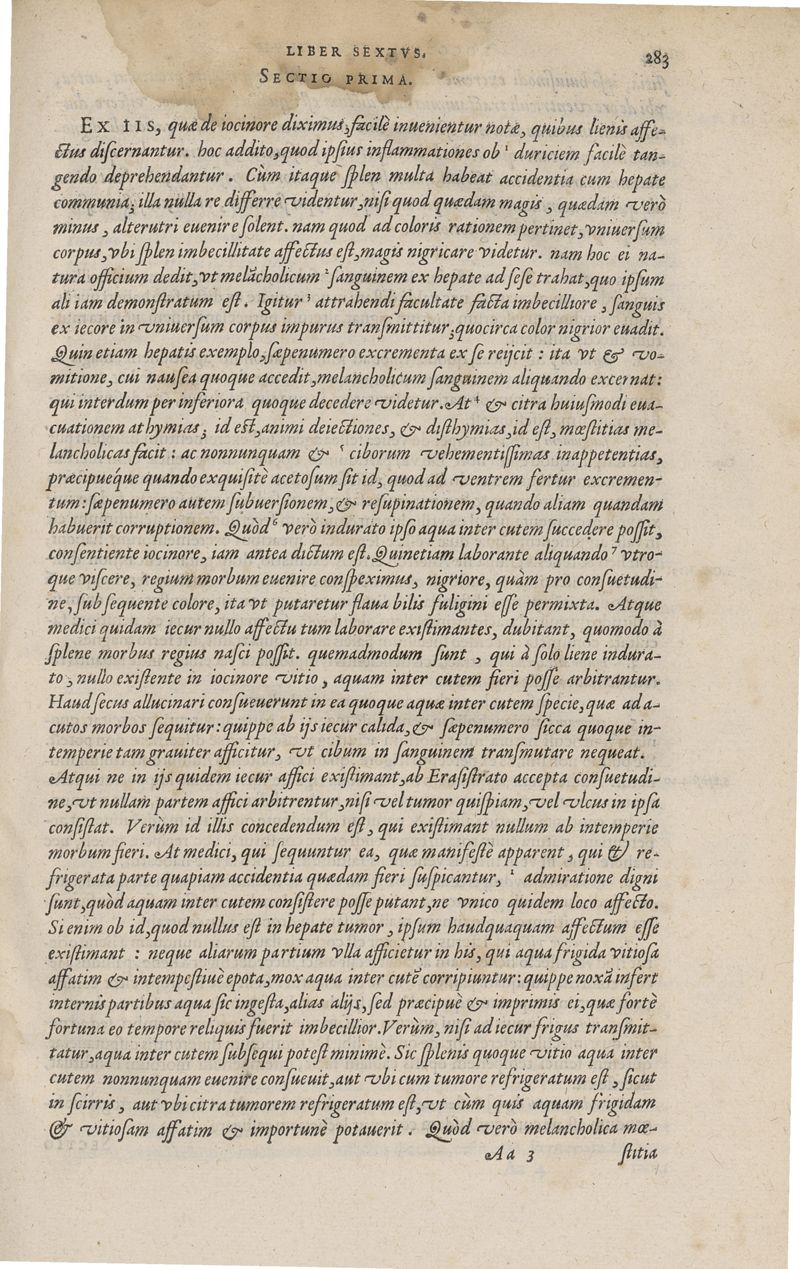 LIBER SEXTVS.
283
SECTIO PRIMA.
EX IIS, quæ de iocinore diximus, facilè inuenientur notæ, quibus lienis affe-
ctus discernantur. hoc addito, quod ipsius inflammationes ob ¹ duriciem facilè tan-
gendo deprehendantur. Cùm itaque splen multa habeat accidentia cum hepate
communia; illa nulla re differre videntur, nisi quod quædam magis, quædam verò
minus, alterutri euenire solent. nam quod ad coloris rationem pertinet, vniuersum
corpus, vbi splen imbecillitate affectus est, magis nigricare videtur. nam hoc ei na-
tura officium dedit, vt melācholicum ² sanguinem ex hepate ad sese trahat, quo ipsum
ali iam demonstratum est. Igitur ³ attrahendi facultate facta imbecilliore, sanguis
ex iecore in vniuersum corpus impurus transmittitur; quocirca color nigrior euadit.
Quin etiam hepatis exemplo, sæpenumero excrementa ex se reijcit: ita vt & vo-
mitione, cui nausea quoque accedit, melancholicum sanguinem aliquando excernat:
qui interdum per inferiora quoque decedere videtur. At ⁴ & citra huiusmodi eua-
cuationem athymias; id est, animi deiectiones, & disthymias, id est, mœstitias me-
lancholicas facit: ac nonnunquam & ⁵ ciborum vehementissimas inappetentias,
præcipueq́ue quando exquisitè acetosum sit id, quod ad ventrem fertur excremen-
tum: sæpenumero autem subuersionem, & resupinationem, quando aliam quandam
habuerit corruptionem. Quòd ⁶ verò indurato ipso aqua inter cutem succedere possit,
consentiente iocinore, iam antea dictum est. Quinetiam laborante aliquando ⁷ vtro-
que viscere, regium morbum euenire conspeximus, nigriore, quàm pro consuetudi-
ne, subsequente colore, ita vt putaretur flaua bilis fuligini esse permixta. Atque
medici quidam iecur nullo affectu tum laborare existimantes, dubitant, quomodo à
splene morbus regius nasci possit. quemadmodum sunt, qui à solo liene indura-
to, nullo existente in iocinore vitio, aquam inter cutem fieri posse arbitrantur.
Haud secus allucinari consueuerunt in ea quoque aquæ inter cutem specie, quæ ad a-
cutos morbos sequitur: quippe ab ijs iecur calida, & sæpenumero sicca quoque in-
temperie tam grauiter afficitur, vt cibum in sanguinem transmutare nequeat.
Atqui ne in ijs quidem iecur affici existimant, ab Erasistrato accepta consuetudi-
ne, vt nullam partem affici arbitrentur, nisi vel tumor quispiam, vel vlcus in ipsa
consistat. Verùm id illis concedendum est, qui existimant nullum ab intemperie
morbum fieri. At medici, qui sequuntur ea, quæ manifestè apparent, qui & re-
frigerata parte quapiam accidentia quædam fieri suspicantur, ¹ admiratione digni
sunt, quòd aquam inter cutem consistere posse putant, ne vnico quidem loco affecto.
Si enim ob id, quod nullus est in hepate tumor, ipsum haudquaquam affectum esse
existimant: neque aliarum partium vlla afficietur in his, qui aqua frigida vitiosa
affatim & intempestiuè epota, mox aqua inter cutē corripiuntur: quippe noxā infert
internis partibus aqua sic ingesta, alias alijs, sed præcipuè & imprimis ei, quæ fortè
fortuna eo tempore reliquis fuerit imbecillior. Verùm, nisi ad iecur frigus transmit-
tatur, aqua inter cutem subsequi potest minimè. Sic splenis quoque vitio aqua inter
cutem nonnunquam euenire consueuit, aut vbi cum tumore refrigeratum est, sicut
in scirris, aut vbi citra tumorem refrigeratum est, vt cùm quis aquam frigidam
& vitiosam affatim & importunè potauerit. Quòd verò melancholica mœ-
Aa 3
stitia